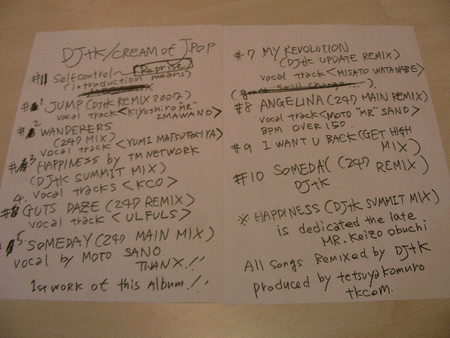 DJtK/CREAM of J.POP
#1 Selfcontrol~ Reprise
(introduction means)
#1' JUMP (DJtK REMIX 2007)
vocal track <KIYOSHIRO "MR"
IMAWANO>
2
# WANDERERS
(247 MIX)
vocal track <YUMI MATSUTOHYA>
#3 HAPPINESS by TM NETWORK
(DJtK SUMMIT MIX)
vocal tracks <KCO>
4.
# GUTS DAZE (247 REMIX)
vocal track <ULFULS>
#5 SOMEDAY (247 MAIN MIX)
vocal by MOTO SANO
THANX!!
1st work of this album!!
#7 MY REVOLUTION
(DJtK UPDATE REMIX)
vocal track <MISATO WATANABE>
still change
#8 ANGELINA (247 MAIN REMIX)
vocal track <MOTO "MR" SANO>
BPM OVER 150
#9 I WANT U BACK (GET HIGH
MIX)
#10 SOMEDAY (247 REMIX)
DJtK
※ HAPPINESS (DJtK SUMMIT MIX)
is dedicated the late
MR. Keizo obuchi
All Songs Remixed by DJtK
produced by tetsuyakomuro
tkcom.